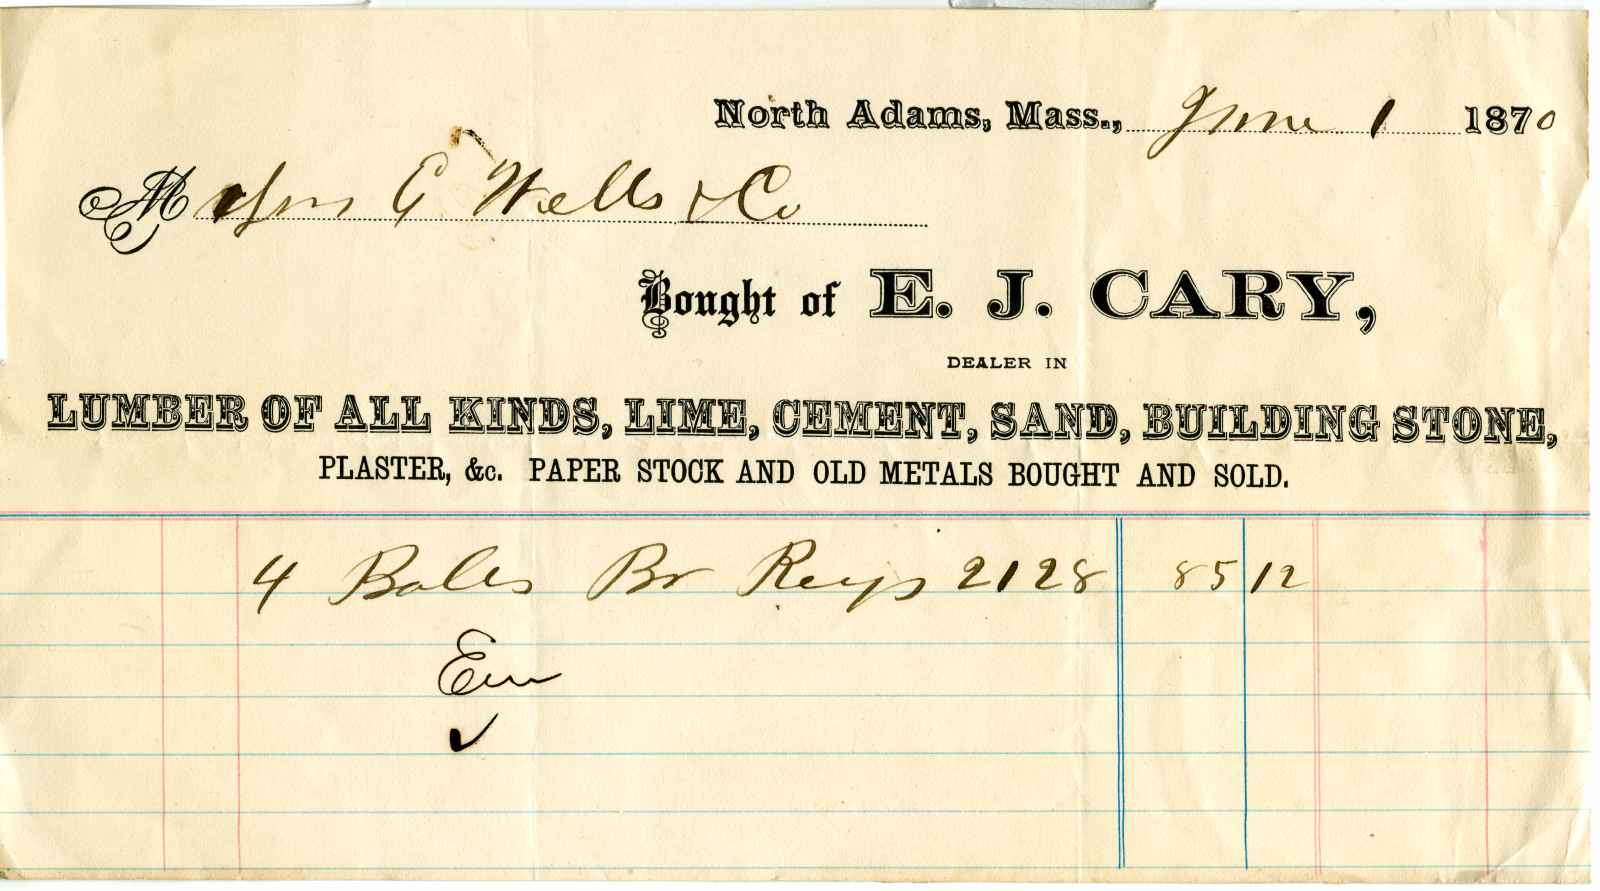 North Adams, Mass., June 1 1870
M E Wells & Co
Bought of E. J. CARY,
DEALER IN
LUMBER OF ALL KINDS, LIME, CEMENT, SAND, BUILDING STONE,
PLASTER, &c. PAPER STOCK AND OLD METALS BOUGHT AND SOLD.
4 Bales Br Rags 2128 85 12